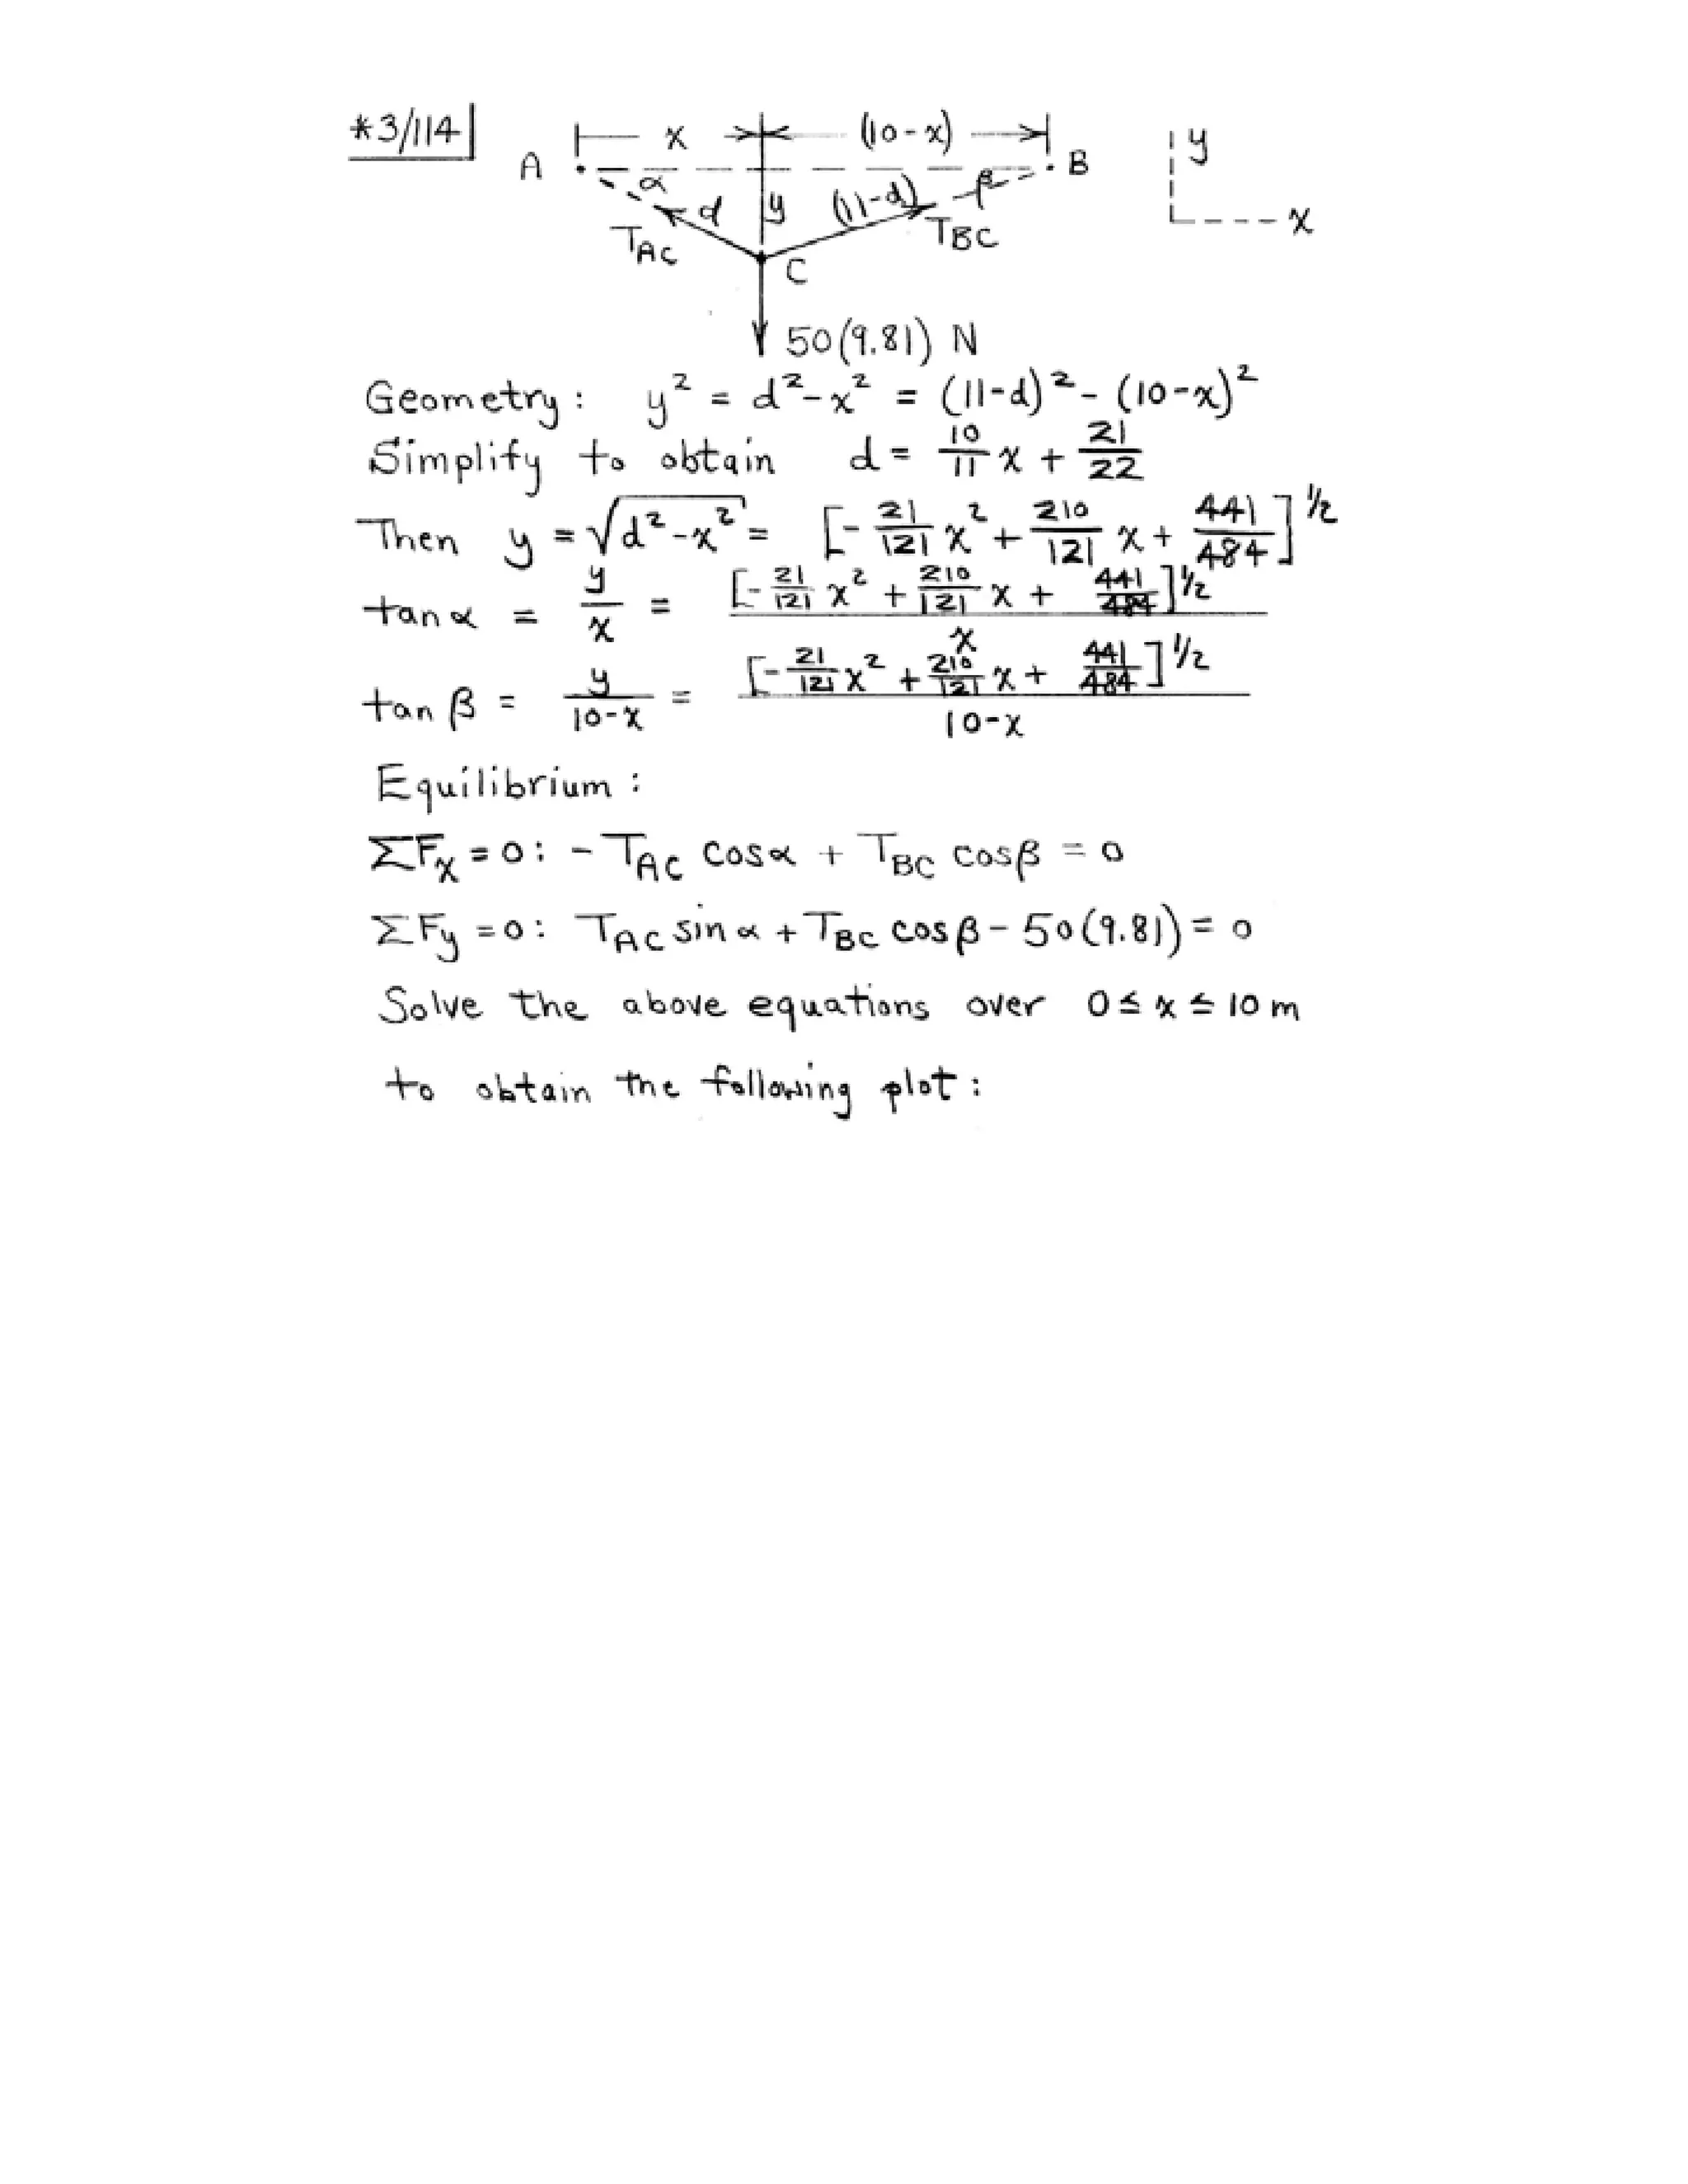 *3/114
x (10-x) y
A B
α β
d y (11-d) x
T_AC T_BC
C
50(9.81) N
Geometry: y² = d²-x² = (11-d)² - (10-x)²
Simplify to obtain d = 10/11 x + 21/22
Then y = √(d²-x²) = [-21/121 x² + 210/121 x + 441/484]^1/2
tan α = y/x = [-21/121 x² + 210/121 x + 441/484]^1/2 / x
tan β = y/(10-x) = [-21/121 x² + 210/121 x + 441/484]^1/2 / (10-x)
Equilibrium:
ΣFx = 0: - T_AC cosα + T_BC cosβ = 0
ΣFy = 0: T_AC sin α + T_BC cosβ - 50(9.81) = 0
Solve the above equations over 0 ≤ x ≤ 10 m
to obtain the following plot: